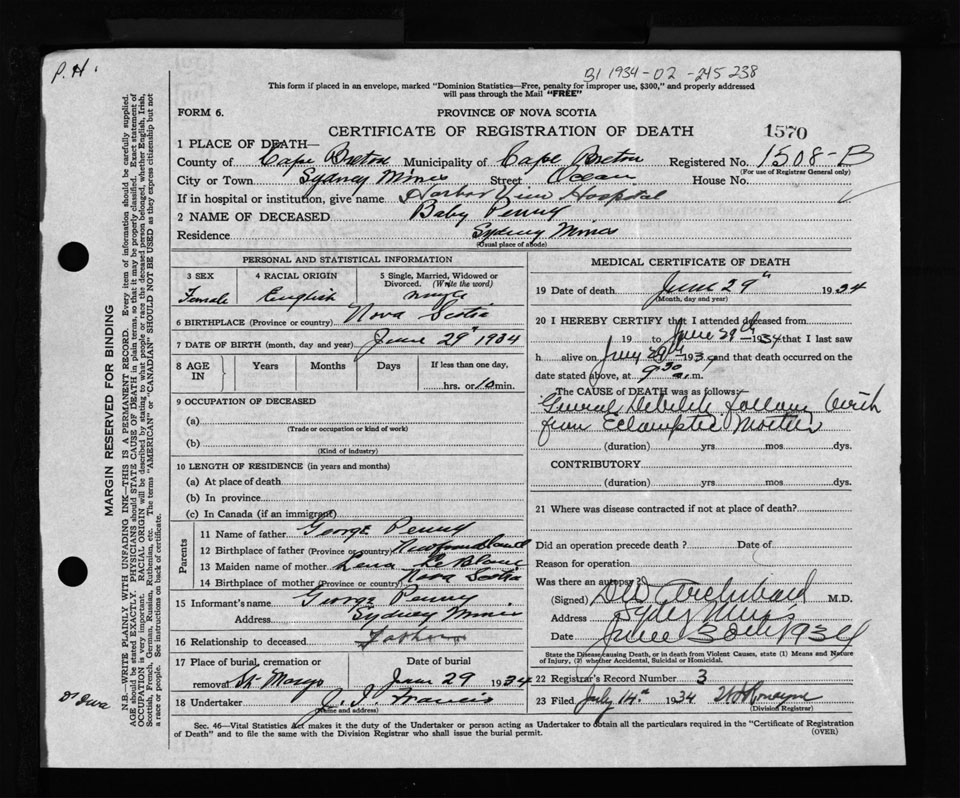 P.H.
B1 1934-02-245238
This form if placed in an envelope, marked "Dominion Statistics—Free, penalty for improper use, $300," and properly addressed
will pass through the Mail "FREE"
FORM 6. PROVINCE OF NOVA SCOTIA
CERTIFICATE OF REGISTRATION OF DEATH 1570
1 PLACE OF DEATH—
County of Cape Breton Municipality of Cape Breton Registered No. 1508-B
(For use of Registrar General only)
City or Town Sydney Mines Street Ocean House No.
If in hospital or institution, give name Harbor View Hospital
2 NAME OF DECEASED Baby Penny
Residence Sydney Mines
(Usual place of abode)
MARGIN RESERVED FOR BINDING
N.B.—WRITE PLAINLY WITH UNFADING INK—THIS IS A PERMANENT RECORD. Every item of information should be carefully supplied.
AGE should be stated EXACTLY. PHYSICIANS should STATE CAUSE OF DEATH in plain terms, so that it may be properly classified. Exact statement of
OCCUPATION is very important. RACIAL ORIGIN will be described by stating to what people or race the deceased person belonged, whether English, Irish,
Scottish, French, German, Russian, Ruthenian, etc. The terms "AMERICAN" or "CANADIAN" SHOULD NOT BE USED as they express citizenship but not
a race or people. See instructions on back of certificate.
PERSONAL AND STATISTICAL INFORMATION
3 SEX 4 RACIAL ORIGIN 5 Single, Married, Widowed or
Divorced. (Write the word)
Female English single
6 BIRTHPLACE (Province or country) Nova Scotia
7 DATE OF BIRTH (month, day and year) June 29" 1934
8 AGE IN Years Months Days If less than one day,
hrs. or 10 min.
9 OCCUPATION OF DECEASED
(a)
(Trade or occupation or kind of work)
(b)
(Kind of industry)
10 LENGTH OF RESIDENCE (in years and months)
(a) At place of death
(b) In province
(c) In Canada (if an immigrant)
Parents
11 Name of father George Penny
12 Birthplace of father (Province or country) Newfoundland
13 Maiden name of mother Lena Le Blanc
14 Birthplace of mother (Province or country) Nova Scotia
15 Informant's name George Penny
Address Sydney Mines
16 Relationship to deceased Father
17 Place of burial, cremation or Date of burial
removal St. Marys June 29 1934
18 Undertaker J. J. Francis
(Name and address)
MEDICAL CERTIFICATE OF DEATH
19 Date of death June 29" 1934
(Month, day and year)
20 I HEREBY CERTIFY that I attended deceased from
19 to June 29th 1934 that I last saw
h alive on 29th 193 and that death occurred on the
date stated above, at 9.30 a.m.
The CAUSE of DEATH was as follows:
General Debility following Birth
from Eclamptic Mother
(duration) yrs mos dys.
CONTRIBUTORY
(duration) yrs mos dys.
21 Where was disease contracted if not at place of death?
Did an operation precede death? Date of
Reason for operation
Was there an autopsy?
(Signed) Archibald M.D.
Address Sydney Mines
Date June 30th 1934
State the Disease causing Death, or in death from Violent Causes, state (1) Means and Nature
of Injury, (2) whether Accidental, Suicidal or Homicidal.
22 Registrar's Record Number 3
23 Filed July 14th 1934
(Division Registrar)
Sec. 46—Vital Statistics Act makes it the duty of the Undertaker or person acting as Undertaker to obtain all the particulars required in the "Certificate of Registration
of Death" and to file the same with the Division Registrar who shall issue the burial permit. (OVER)